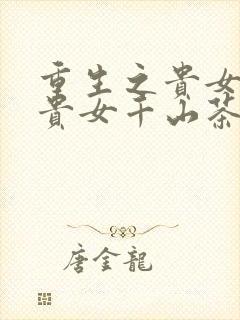 重生之貴女
貴女千山茶
唐金龍